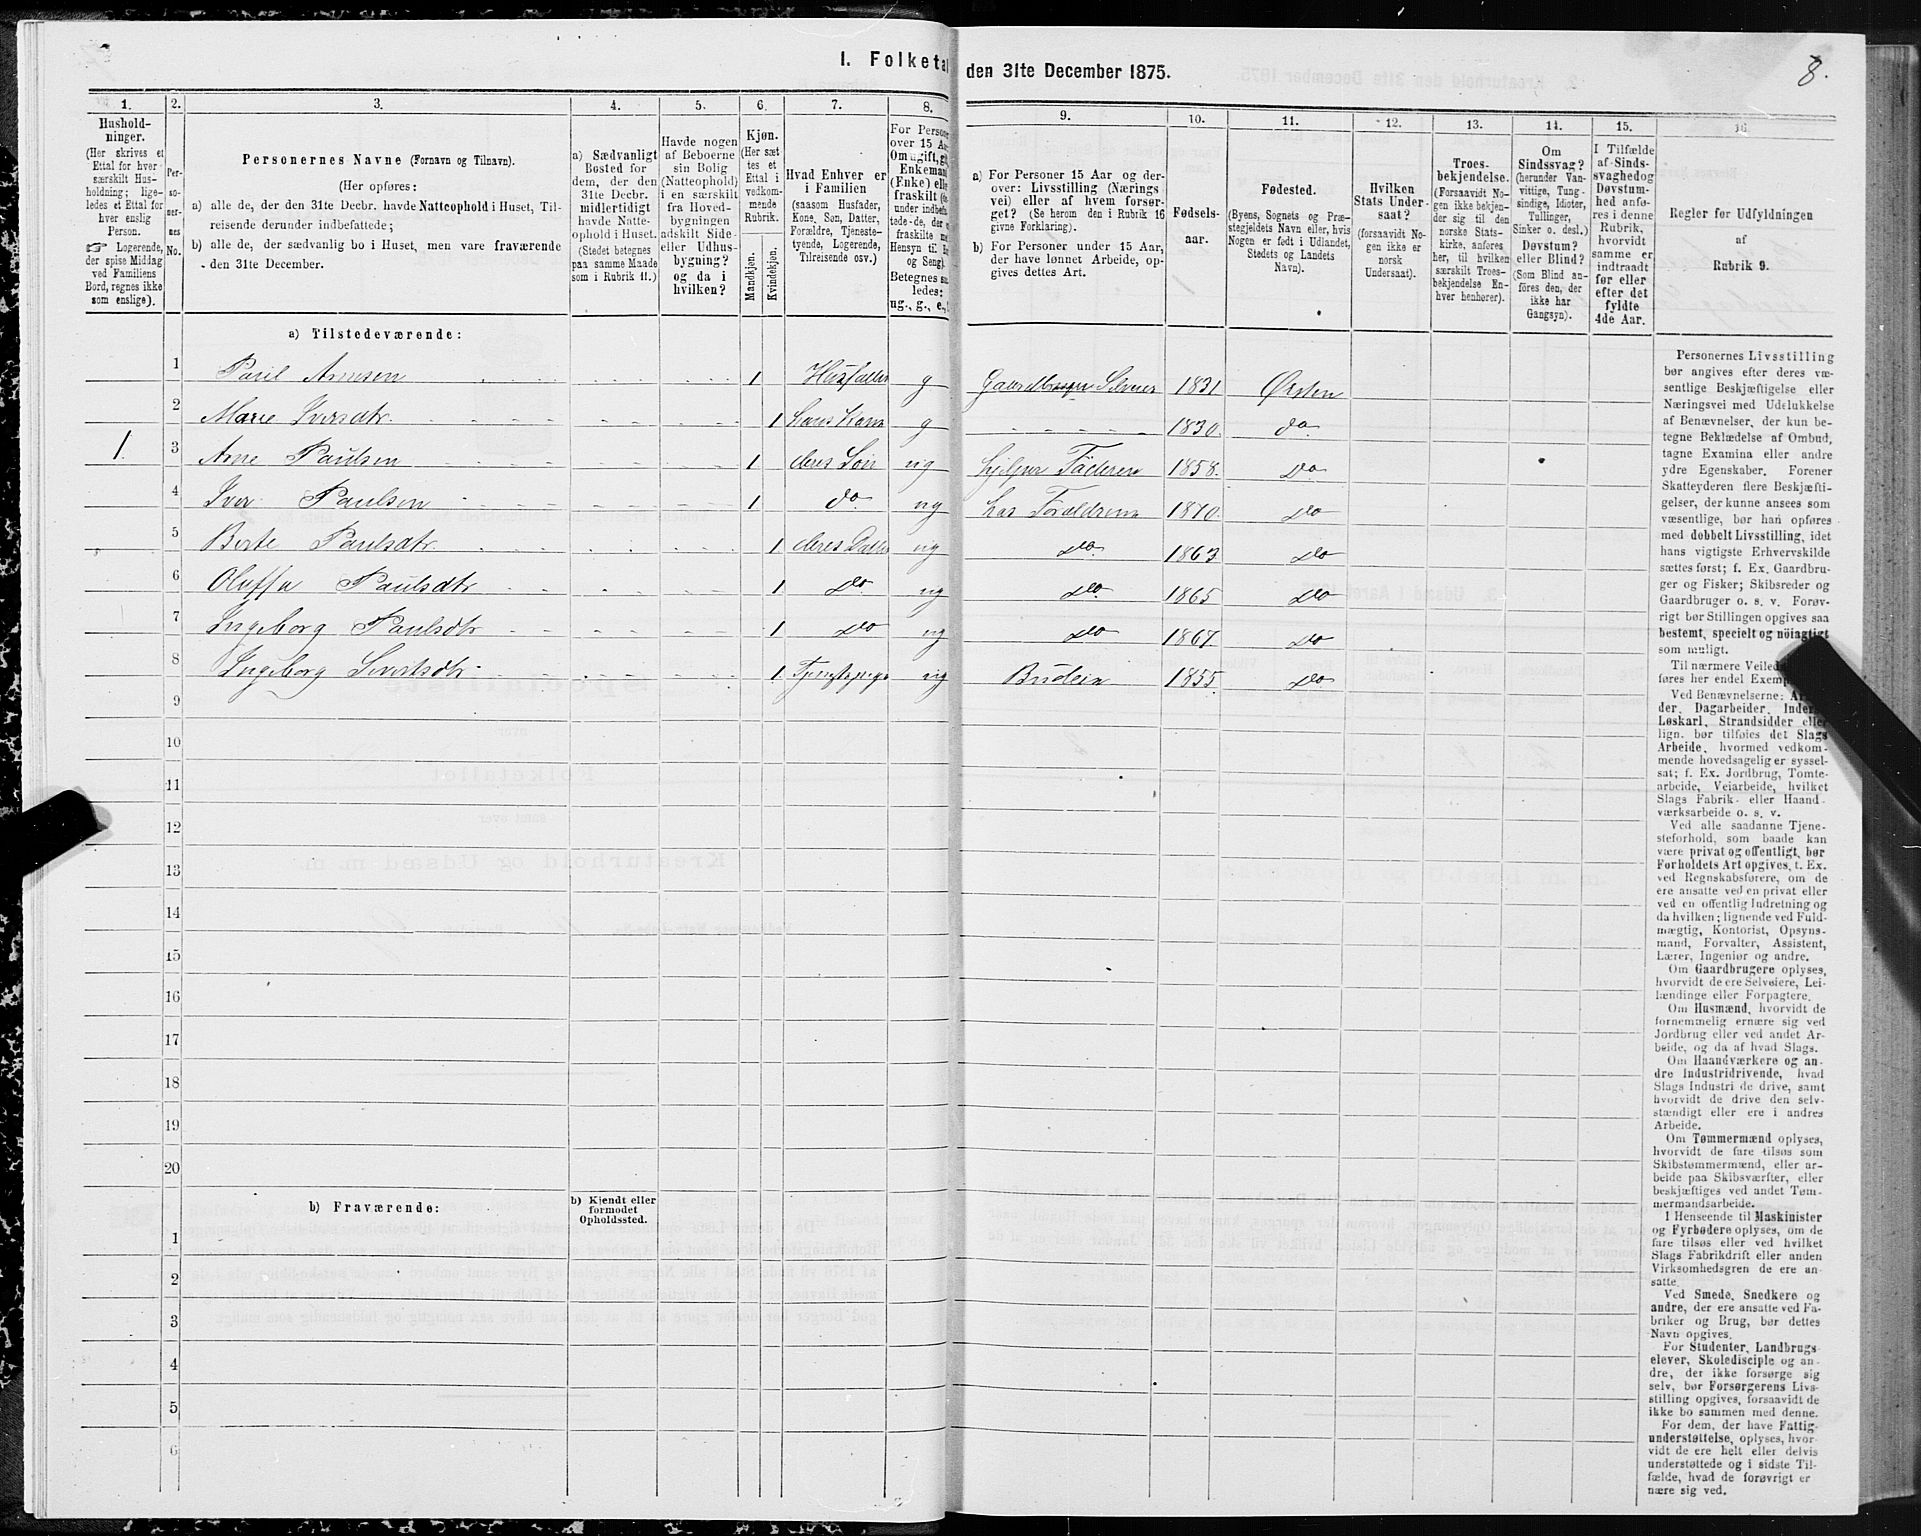 I. Folketal
den 31te December 1875.
8.
1.
Hushold-
ninger.
(Her skrives et
Ettal for hver
særskilt Hus-
holdning; lige-
ledes et Ettal for
hver enslig
Person.
☞ Logerende,
der spise Middag
ved Familiens
Bord, regnes ikke
som enslige).
2.
Per-
so-
ner-
nes
No.
3.
Personernes Navne (Fornavn og Tilnavn).
(Her opføres:
a) alle de, der den 31te Decbr. havde Natteophold i Huset, Til-
reisende derunder indbefattede;
b) alle de, der sædvanlig bo i Huset, men vare fraværende
den 31te December.
4.
a) Sædvanligt
Bosted for
dem, der den
31te Decbr.
midlertidigt
havde Natte-
ophold i Huset.
(Stedet betegnes
paa samme Maade
som i Rubrik 11.)
5.
Havde nogen
af Beboerne
sin Bolig
(Natteophold)
i en særskilt
fra Hoved-
bygningen
adskilt Side-
eller Udhus-
bygning?
og da i
hvilken?
6.
Kjøn.
(Her sæt
tes et
Ettal i
vedkom-
mende
Rubrik.
Mandkjøn.
Kvindekjøn.
7.
Hvad Enhver er
i Familien
(saasom Husfader,
Kone, Søn, Datter,
Forældre, Tjeneste-
tyende, Logerende,
Tilreisende osv.)
8.
For Persone
over 15 Aa
Om ugift, g
Enkeman
(Enke) elle
fraskilt
under indbefa
tede de, der e
fraskilte
Hensyn til
og Seng).
Betegnes
ledes:
ug., g., e.,
9.
a) For Personer 15 Aar og der-
over: Livsstilling (Nærings
vei) eller af hvem forsør-
get? (Se herom den i Rubrik 16
givne Forklaring).
b) For Personer under 15 Aar,
der have lønnet Arbeide, op-
gives dettes Art.
10.
Fødsels-
aar.
11.
Fødested.
(Byens, Sognets og Præ-
stegjeldets Navn eller, hvis
Nogen er født i Udlandet,
Stedets og Landets
Navn).
12.
Hvilken
Stats Under-
saat?
(forsaavidt No-
gen ikke er
norsk
Undersaat).
13.
Troes-
bekjendelse.
(Forsaavidt No-
gen ikke bekjen-
der sig til den
norske Stats-
kirke, anføres
her, til hvilken
særskilt Troes-
bekjendelse En-
hver henhører).
14.
Om
Sindssvag?
(herunder Van-
vittige, Tung-
sindige, Idioter,
Tullinger,
Sinker o. desl.)
Døvstum?
eller Blind?
(Som Blind an-
føres den, der
ikke har
Gangsyn).
15.
I Tilfælde
af Sinds-
svaghedog
Døvstum-
hed anfø-
res i denne
Rubrik,
hvorvidt
samme er
indtraadt
før eller
efter det
fyldte
4de Aar.
16
Regler for Udfyldningen
af
Rubrik 9.
a) Tilstedeværende:
1 Paul Arnesen 1 Husfader g Gaardbruger Selveier 1831 Ørsten
2 Marie Iversdtr. 1 hans Kone g 1830. do.
1. 3 Arne Paulsen 1 deres Søn ug hjelper Faderen 1858. do
4 Iver Paulsen 1 do. ug hos Forældrene 1870. do
5 Berte Paulsdtr. 1 deres Datter ug do. 1863 do
6 Oluffa Paulsdtr 1 do. ug do. 1865 do
7 Ingeborg Paulsdtr 1 do ug do 1867. do
8 Ingeborg Sivertsdtr 1 Tjenstepige ug Budeie 1855. do
9
10
11
12
13
14
15
16
17
18
19
20
b) Fraværende:
b) Kjendt eller
formodet
Opholdssted.
1
2
3
4
5
6
Personernes Livsstilling
bør angives efter deres væ-
sentlige Beskjæftigelse eller
Næringsvei med Udelukkelse
af Benævnelser, der kun be-
tegne Beklædelse af Ombud,
tagne Examina eller andre
ydre Egenskaber. Forener
Skatteyderen flere Beskjæfti-
gelser, der kunne ansees som
væsentlige, bør han opføres
med dobbelt Livsstilling, idet
hans vigtigste Erhvervskilde
sættes først; f. Ex. Gaardbru-
ger og Fisker; Skibsreder og
Gaardbruger o. s. v. Forøv-
rigt bør Stillingen opgives saa
bestemt, specielt og nöiagtigt
som muligt.
Til nærmere Veiled
føres her endel Exemp
Ved Benævnelserne: Ar
der, Dagarbeider, Inders
Løskarl, Strandsidder eller
lign. bør tilføies det Slags
Arbeide, hvormed vedkom-
mende hovedsagelig er syssel-
sat; f. Ex. Jordbrug, Tomte-
arbeide, Veiarbeide, hvilket
Slags Fabrik- eller Haand-
værksarbeide o. s. v.
Ved alle saadanne Tjene-
steforhold, som baade kan
være privat og offentligt, bør
Forholdets Art opgives, t. Ex.
ved Regnskabsførere, om de
ere ansatte ved en privat eller
ved en offentlig Indretning og
da hvilken; lignende ved Fuld-
mægtig, Kontorist, Opsyns-
mand, Forvalter, Assistent,
Lærer, Ingeniør og andre.
Om Gaardbrugere oplyses,
hvorvidt de ere Selveiere, Lei-
lændinge eller Forpagtere.
Om Husmænd, hvorvidt de
fornemmelig ernære sig ved
Jordbrug eller ved andet Ar-
beide, og da af hvad Slags.
Om Haandværkere og an-
dre Industridrivende, hvad
Slags Industri de drive, samt
hvorvidt de drive den selv-
stændigt eller ere i andres
Arbeide.
Om Tømmermænd oplyses,
hvorvidt de fare tilsøs som
Skibstømmermænd, eller ar-
beide paa Skibsværfter, eller
beskjæftiges ved andet Tøm-
mermandsarbeide.
I Henseende til Maskinister
og Fyrbødere oplyses, om de
fare tilsøs eller ved hvilket
Slags Fabrikdrift eller anden
Virksomhedsgren de ere an-
satte.
Ved Smede, Snedkere og
andre, der ere ansatte ved Fa-
briker og Brug, bør dettes
Navn opgives.
For Studenter, Landbrugs-
elever, Skoledisciple og an-
dre, der ikke forsørge sig
selv, bør Forsørgerens Livs-
stilling opgives, forsaavidt de
ikke bo sammen med denne.
For dem, der have Fattig-
understøttelse, oplyses, hvor-
vidt de ere helt eller delvis
understøttede og i sidste Til-
fælde, hvad de forøvrigt er
nære sig ved.